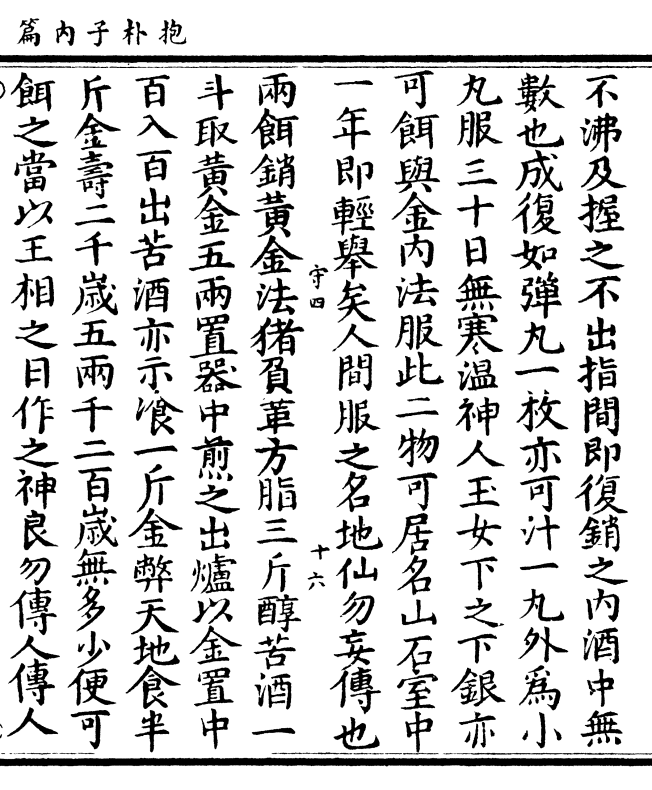 抱朴子内篇
不沸及握之不出指間即復銷之内酒中無
數也成復如彈丸一枚亦可汁一丸外爲小
丸服三十日無寒温神人玉女下之下銀亦
可餌與金内法服此二物可居名山石室中
一年即輕舉矣人間服之名地仙勿妄傳也
守四
十六
兩餌銷黄金法猪負革方脂三斤醇苦酒一
斗取黄金五兩置器中煎之出爐以金置中
百入百出苦酒亦示飡一斤金弊天地食半
斤金壽二千歳五兩千二百歳無多少便可
餌之當以王相之日作之神良勿傳人傳人